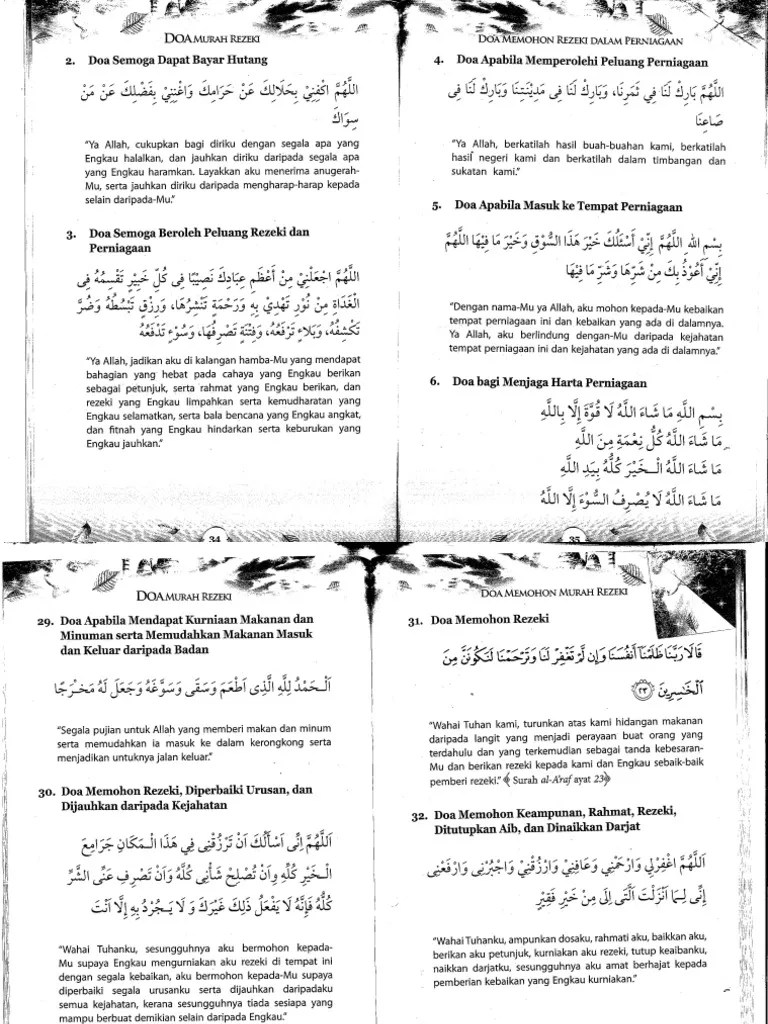 DOA MURAH REZEKI
2. Doa Semoga Dapat Bayar Hutang
اللَّهُمَّ اكْفِنِيْ بِحَلَالِكَ عَنْ حَرَامِكَ وَاغْنِنِيْ بِفَضْلِكَ عَنْ مَنْ
سِوَاكَ
"Ya Allah, cukupkan bagi diriku dengan segala apa yang
Engkau halalkan, dan jauhkan diriku daripada segala apa
yang Engkau haramkan. Layakkan aku menerima anugerah-
Mu, serta jauhkan diriku daripada mengharap-harap kepada
selain daripada-Mu."
3. Doa Semoga Beroleh Peluang Rezeki dan
Perniagaan
اللَّهُمَّ اجْعَلْنِيْ مِنْ أَعْظَمِ عِبَادِكَ نَصِيْبًا فِى كُلِّ خَيِيْرٍ تَقْسِمُهُ فِى
الْغَدَاةِ مِنْ نُوْرٍ تَهْدِيْ بِهِ وَرَحْمَةٍ تَنْشُرُهَا، وَرِزْقٍ تَبْسُطُهُ وَضُرٍّ
تَكْشِفُهُ، وَبَلَاءٍ تَرْفَعُهُ، وَفِتْنَةٍ تَصْرِفُهَا، وَسُوْءٍ تَدْفَعُهُ
"Ya Allah, jadikan aku di kalangan hamba-Mu yang mendapat
bahagian yang hebat pada cahaya yang Engkau berikan
sebagai petunjuk, serta rahmat yang Engkau berikan, dan
rezeki yang Engkau limpahkan serta kemudharatan yang
Engkau selamatkan, serta bala bencana yang Engkau angkat,
dan fitnah yang Engkau hindarkan serta keburukan yang
Engkau jauhkan."
34
DOA MEMOHON REZEKI DALAM PERNIAGAAN
4. Doa Apabila Memperolehi Peluang Perniagaan
اللَّهُمَّ بَارِكْ لَنَا فِي ثَمَرِنَا، وَبَارِكْ لَنَا فِى مَدِيْنَتِنَا وَبَارِكْ لَنَا فِى
صَاعِنَا
"Ya Allah, berkatilah hasil buah-buahan kami, berkatilah
hasil negeri kami dan berkatilah dalam timbangan dan
sukatan kami."
5. Doa Apabila Masuk ke Tempat Perniagaan
بِسْمِ اللهِ اللَّهُمَّ إِنِّيْ أَسْئَلُكَ خَيْرَ هَذَا السُّوْقِ وَخَيْرَ مَا فِيْهَا اللَّهُمَّ
إِنِّيْ أَعُوْذُ بِكَ مِنْ شَرِّهَا وَشَرِّ مَا فِيْهَا
"Dengan nama-Mu ya Allah, aku mohon kepada-Mu kebaikan
tempat perniagaan ini dan kebaikan yang ada di dalamnya.
Ya Allah, aku berlindung dengan-Mu daripada kejahatan
tempat perniagaan ini dan kejahatan yang ada di dalamnya."
6. Doa bagi Menjaga Harta Perniagaan
بِسْمِ اللَّهِ مَا شَاءَ اللَّهُ لَا قُوَّةَ إِلَّا بِاللَّهِ
مَا شَاءَ اللَّهُ كُلُّ نِعْمَةٍ مِنَ اللَّهِ
مَا شَاءَ اللَّهُ الْخَيْرَ كُلُّهُ بِيَدِ اللَّهِ
مَا شَاءَ اللَّهُ لَا يُصْرِفُ السُّوْءَ إِلَّا اللَّهُ
35
DOA MURAH REZEKI
29. Doa Apabila Mendapat Kurniaan Makanan dan
Minuman serta Memudahkan Makanan Masuk
dan Keluar daripada Badan
اَلْحَمْدُ لِلَّهِ الَّذِى اَطْعَمَ وَسَقَى وَسَوَّغَهُ وَجَعَلَ لَهُ مَخْرَجًا
"Segala pujian untuk Allah yang memberi makan dan minum
serta memudahkan ia masuk ke dalam kerongkong serta
menjadikan untuknya jalan keluar."
30. Doa Memohon Rezeki, Diperbaiki Urusan, dan
Dijauhkan daripada Kejahatan
اَللَّهُمَّ اِنِّى اَسْأَلُكَ اَنْ تَرْزُقْنِى فِى هَذَا الْمَكَانِ جَرَامِعَ
الْخَيْرِ كُلِّهِ وَاَنْ تُصْلِحَ شَأْنِى كُلَّهُ وَاَنْ تَصْرِفَ عَنِّى الشَّرَّ
كُلَّهُ فَاِنَّهُ لَا يَفْعَلُ ذَلِكَ غَيْرَكَ وَ لَا يَجُرْدُ بِهِ اِلَّا اَنْتَ
"Wahai Tuhanku, sesungguhnya aku bermohon kepada-
Mu supaya Engkau mengurniakan aku rezeki di tempat ini
dengan segala kebaikan, aku bermohon kepada-Mu supaya
diperbaiki segala urusanku serta dijauhkan daripadaku
semua kejahatan, kerana sesungguhnya tiada sesiapa yang
mampu berbuat demikian selain daripada Engkau."
DOA MEMOHON MURAH REZEKI
31. Doa Memohon Rezeki
قَالَا رَبَّنَا ظَلَمْنَآ أَنفُسَنَا وَإِن لَّمْ تَغْفِرْ لَنَا وَتَرْحَمْنَا لَنَكُونَنَّ مِنَ
ٱلْخَٰسِرِينَ ٢٣
"Wahai Tuhan kami, turunkan atas kami hidangan makanan
daripada langit yang menjadi perayaan buat orang yang
terdahulu dan yang terkemudian sebagai tanda kebesaran-
Mu dan berikan rezeki kepada kami dan Engkau sebaik-baik
pemberi rezeki." (Surah al-A'raf ayat 23)
32. Doa Memohon Keampunan, Rahmat, Rezeki,
Ditutupkan Aib, dan Dinaikkan Darjat
اَللَّهُمَّ اغْفِرْلِي وَارْحَمْنِي وَعَافِنِيْ وَارْزُقْنِيْ وَاجْبُرْنِى وَارْفَعْنِى
اِنِّى لِمَا اَنْزَلْتَ الَّتِى اِلَى مِنْ خَيْرٍ فَقِيْرٍ
"Wahai Tuhanku, ampunkan dosaku, rahmati aku, baikkan aku,
berikan aku petunjuk, kurniakan aku rezeki, tutup keaibanku,
naikkan darjatku, sesungguhnya aku amat berhajat kepada
pemberian kebaikan yang Engkau kurniakan."